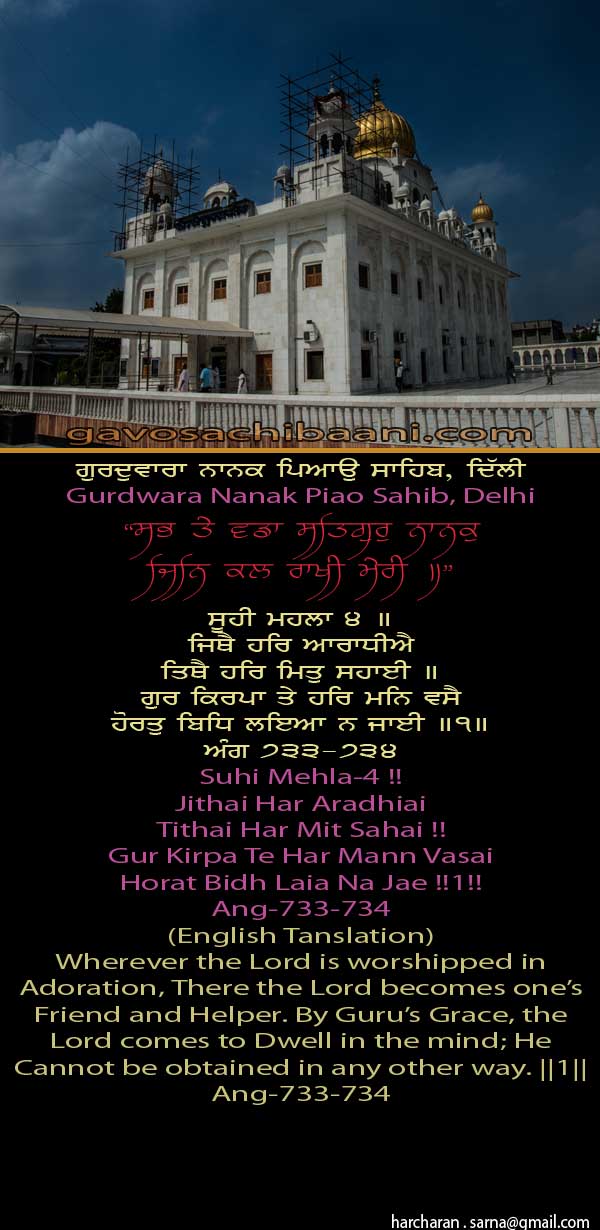 gavosachibaani.com
ਗੁਰਦੁਵਾਰਾ ਨਾਨਕ ਪਿਆਉ ਸਾਹਿਬ, ਦਿੱਲੀ
Gurdwara Nanak Piao Sahib, Delhi
“ਸਭ ਤੇ ਵਡਾ ਸਤਿਗੁਰੁ ਨਾਨਕੁ
ਜਿਨਿ ਕਲ ਰਾਖੀ ਮੇਰੀ ॥”
ਸੂਹੀ ਮਹਲਾ ੪ ॥
ਜਿਥੈ ਹਰਿ ਆਰਾਧੀਐ
ਤਿਥੈ ਹਰਿ ਮਿਤੁ ਸਹਾਈ ॥
ਗੁਰ ਕਿਰਪਾ ਤੇ ਹਰਿ ਮਨਿ ਵਸੈ
ਹੋਰਤੁ ਬਿਧਿ ਲਇਆ ਨ ਜਾਈ ॥੧॥
ਅੰਗ ੭੩੩-੭੩੪
Suhi Mehla-4 !!
Jithai Har Aradhiai
Tithai Har Mit Sahai !!
Gur Kirpa Te Har Mann Vasai
Horat Bidh Laia Na Jae !!1!!
Ang-733-734
(English Tanslation)
Wherever the Lord is worshipped in
Adoration, There the Lord becomes one’s
Friend and Helper. By Guru’s Grace, the
Lord comes to Dwell in the mind; He
Cannot be obtained in any other way. ||1||
Ang-733-734
harcharan . sarna@gmail.com